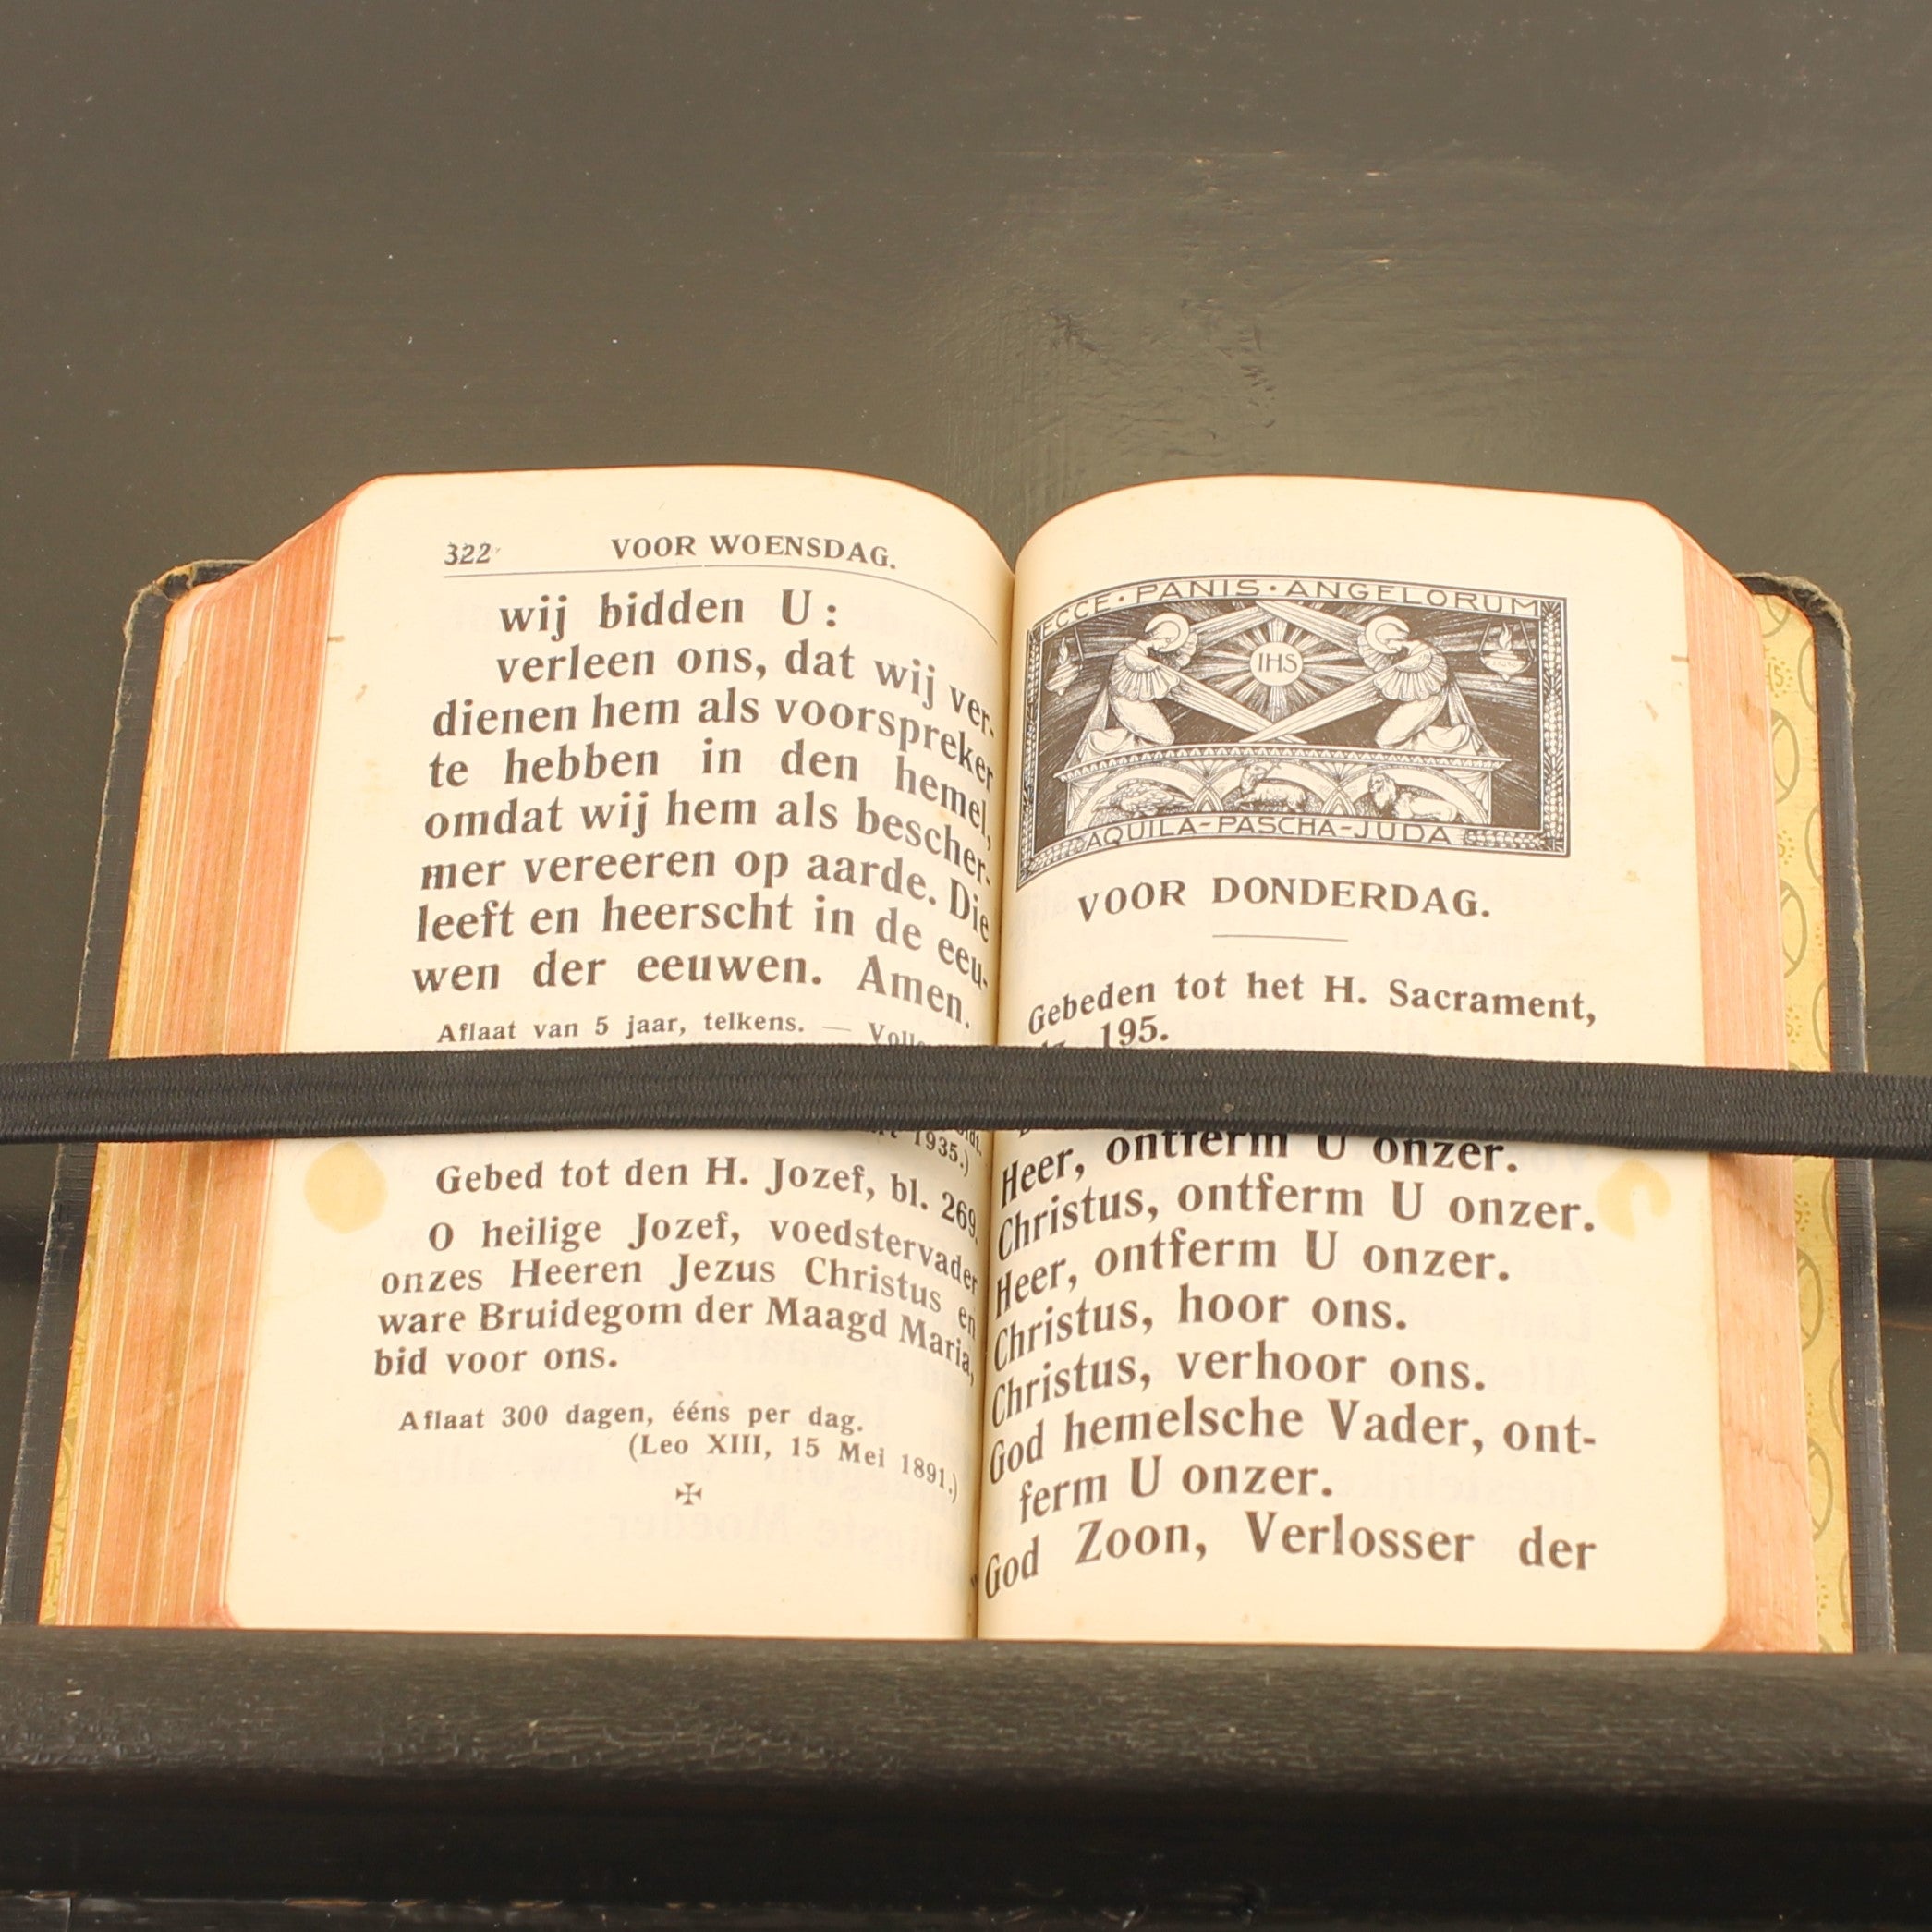 322 VOOR WOENSDAG.
wij bidden U :
verleen ons, dat wij ver-
dienen hem als voorspreker
te hebben in den hemel,
omdat wij hem als bescher-
mer vereeren op aarde. Die
leeft en heerscht in de eeu-
wen der eeuwen. Amen.
Aflaat van 5 jaar, telkens. —
1935.)
Gebed tot den H. Jozef, bl. 269.
O heilige Jozef, voedstervader
onzes Heeren Jezus Christus en
ware Bruidegom der Maagd Maria,
bid voor ons.
Aflaat 300 dagen, ééns per dag.
(Leo XIII, 15 Mei 1891.)
ECCE · PANIS · ANGELORUM
IHS
AQUILA-PASCHA-JUDA
VOOR DONDERDAG.
Gebeden tot het H. Sacrament,
195.
Heer, ontferm U onzer.
Christus, ontferm U onzer.
Heer, ontferm U onzer.
Christus, hoor ons.
Christus, verhoor ons.
God hemelsche Vader, ont-
ferm U onzer.
God Zoon, Verlosser der